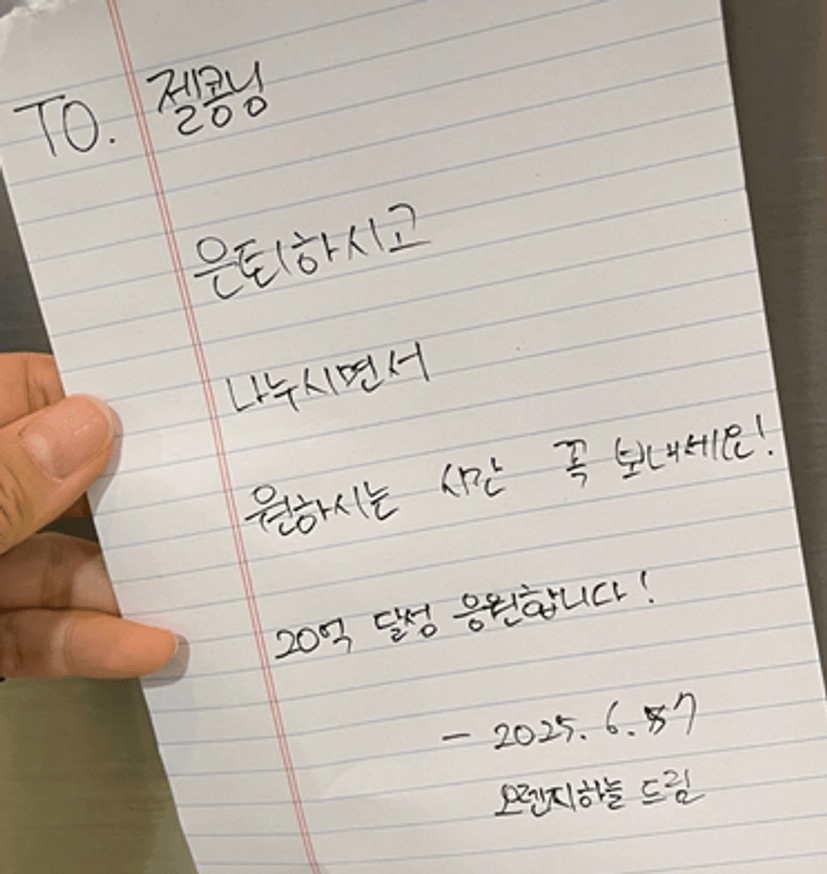 TO. 젤콩닝
은퇴하시고
나누시면서
원하시는 시간 꼭 보내세요!
20억 달성 응원합니다!
- 2025. 6. 7
오렌지하늘 드림